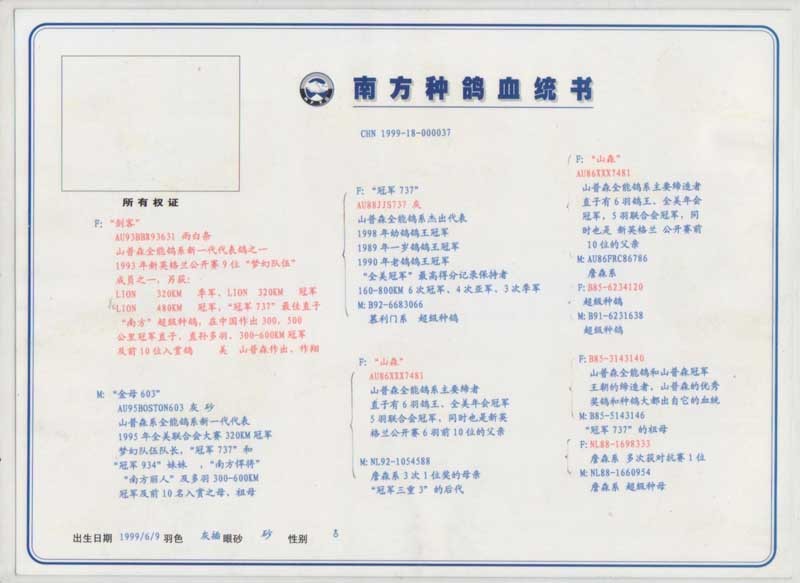 南方种鸽血统书
CHN 1999-18-000037
所有权证
F: "刺客"
AU93BBR93631 雨白条
山普森全能鸽系新一代代表鸽之一
1993年新英格兰公开赛9位"梦幻队伍"
成员之一，另获：
LION 320KM 季军、LION 320KM 冠军
LION 480KM 冠军，"冠军737"最佳直子
"南方"超级种鸽，在中国作出300、500
公里冠军直子，直孙多羽、300-600KM冠军
及前10位入赏鸽 美 山普森作出、作翔
M: "金母603"
AU95BOSTON603 灰 砂
山普森系全能鸽系新一代代表
1995年全美联合会大赛320KM冠军
梦幻队伍队长，"冠军737"和
"冠军934"妹妹 ，"南方悍将"
"南方丽人"及多羽300-600KM
冠军及前10名入赏之母、祖母
F: "冠军737"
AU88JJS737 灰
山普森全能鸽系杰出代表
1998年幼鸽鸽王冠军
1989年一岁鸽鸽王冠军
1990年老鸽鸽王冠军
"全美冠军"最高得分记录保持者
160-800KM 6次冠军、4次亚军、3次季军
M:B92-6683066
慕利门系 超级种鸽
F: "山森"
AU86XXX7481
山普森全能鸽系主要缔造者
直子有6羽鸽王、全美年会冠军
5羽联合会冠军，同时也是新英
格兰公开赛6羽前10位的父亲
M:NL92-1054588
詹森系3次1位奖的母亲
"冠军三重3"的后代
F: "山森"
AU86XXX7481
山普森全能鸽系主要缔造者
直子有6羽鸽王、全美年会
冠军，5羽联合会冠军，同
时也是 新英格兰 公开赛前
10位的父亲
M:AU86FRC86786
詹森系
F:B85-6234120
超级种鸽
M:B91-6231638
超级种鸽
F:B85-3143140
山普森全能鸽和山普森冠军
王朝的缔造者，山普森的优秀
奖鸽和种鸽大都出自它的血统
M:B85-5143146
"冠军737"的祖母
F:NL88-1698333
詹森系 多次获对抗赛1位
M:NL88-1660954
詹森系 超级种母
出生日期 1999/6/9 羽色 灰插 眼砂 砂 性别